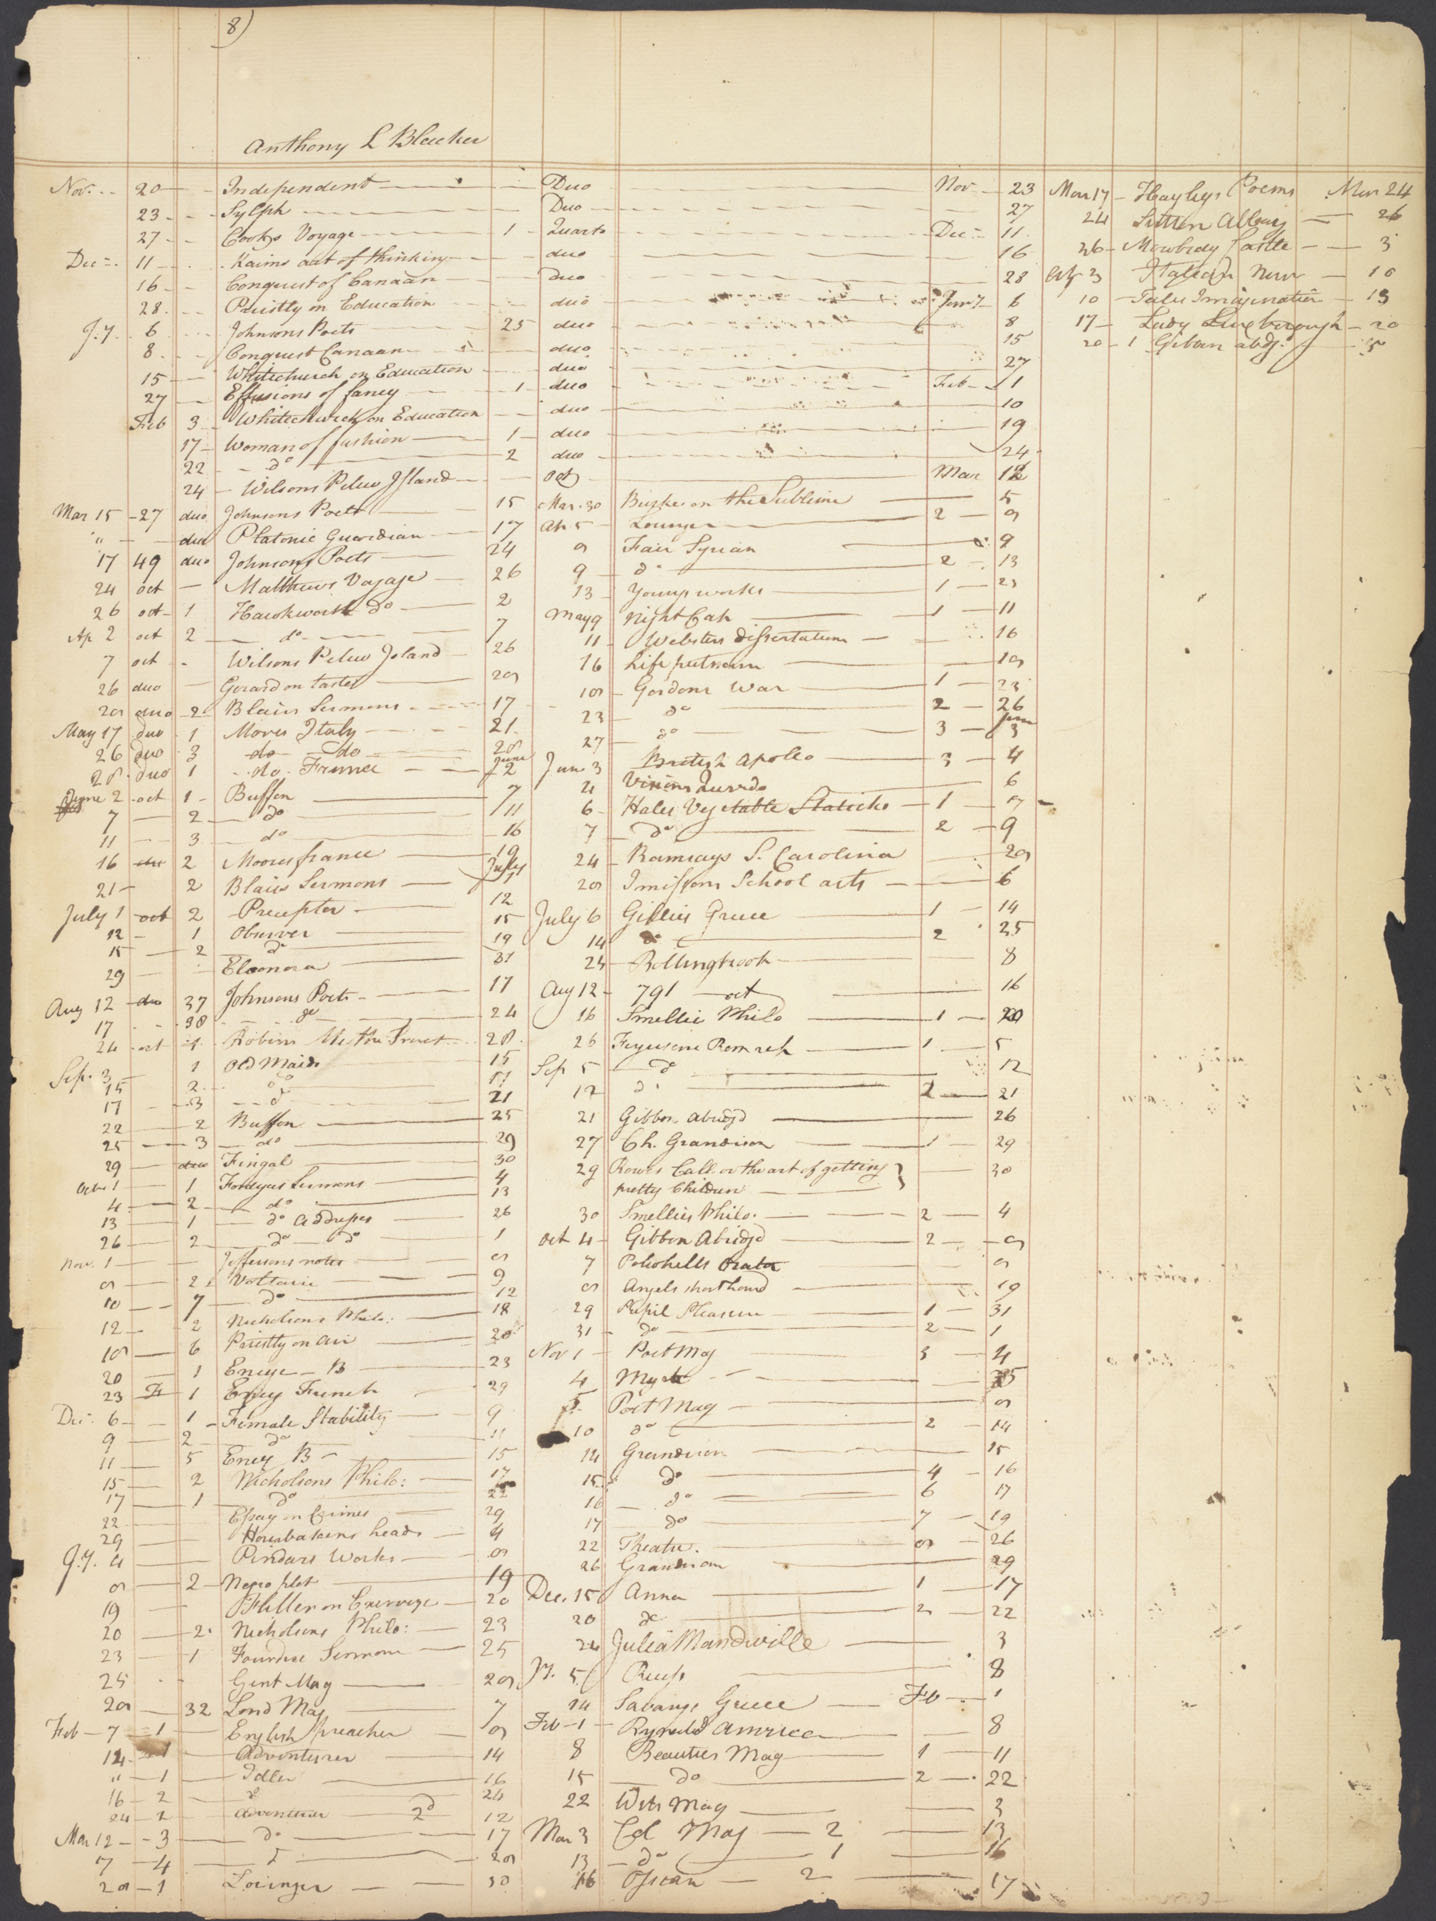 8)
Anthony L Bleecker
Nov. 20 Independent Duo Nov 23
23 Sylph Duo 27
27 Cooks Voyage 1 Quarto Dec 11
Dec 11 Kaims art of thinking duo 16
16 Conquest of Canaan Duo 28
28 Priestly on Education duo Jany 6
J.y. 6 Johnsons Poets 25 duo 8
8 Conquest Canaan duo 15
15 Whitechurch on Education duo 27
27 Effusions of fancy 1 duo Feb 1
Feb 3 Whitechurch on Education duo 10
17 Woman of fashion 1 duo 19
22 do 2 duo 24
24 Wilsons Pelew Island oct Mar 12
Mar 15 27 duo Johnsons Poets 15
" duo Platonic Guardian 17
17 49 duo Johnsons Poets 24
24 oct Matthews Voyage 26
26 oct 1 Hawkworth do 2
Ap 2 oct 2 do 7
7 oct Wilsons Pelew Island 26
26 duo Gerard on taste 28
28 duo 2 Blairs Sermons 17
May 17 duo 1 Mores Italy 21
26 duo 3 do do 28
28 duo 1 do France June 2
June 2 oct 1 Buffon 7
7 2 do 11
11 3 do 16
16 2 Moores france 19
21 2 Blairs Sermons July 1
July 1 oct 2 Precepter 12
12 1 Observer 15
15 2 do 19
29 Eleonora 31
Aug 12 duo 37 Johnsons Poets 17
17 38 do 24
24 oct 1 28
Sep. 3 1 Old Maids 15
15 2 do 17
17 3 do 21
22 2 Buffon 25
25 3 do 29
29 duo Fingal 30
Octr 1 1 Fordyces Sermons 4
4 2 do 13
13 1 do Addresses 26
26 2 do do 1
Nov. 1 Jeffersons notes 8
8 2 Voltaire 9
10 7 do 12
12 2 Nicholsons Philo: 18
18 6 Priestly on air 20
20 1 Encyc B 23
23 1 Ency French 29
Dec. 6 1 Female Stability 9
9 2 do 11
11 5 Ency B 15
15 2 Nicholsons Philo: 17
17 1 do 22
22 Essay on Crimes 29
29 Houbrakens heads 4
J.y. 4 Pindars Works 8
8 2 Negro plot 19
19 Fuller on Exercise 20
20 2 Nicholsons Philo: 23
23 1 Fourdice Sermons 25
25 Gent Mag 28
28 32 Lond Mag 7
Feb 7 1 English preacher 8
14 1 Adventurer 14
" 1 Idler 16
16 2 do 24
24 2 Adventurer 2d 12
Mar 12 3 do 17
17 4 do 28
28 1 Lounger 30
Mar. 30 Burke on the Sublime 5
Ap 5 Lounger 2 8
8 Fair Syrian 9
9 do 2 13
13 Youngs works 1 23
May 9 Night Cap 1 11
11 Websters dissertations 16
16 Life putnam 18
18 Gordons War 1 23
23 do 2 26
27 do 3 June 3
June 3 British Apollo 3 4
4 Visions Quevedo 6
6 Hales Vegetable Staticks 1 7
7 do 2 9
24 Ramsays S. Carolina 28
28 Imisons School arts 6
July 6 Gillies Greece 1 14
14 do 2 25
24 Bollingbrook 8
Aug 12 791 oct 16
16 Smellie Philo 1 20
26 Fergusons Rom rep 1 5
Sep 5 do 12
12 do 2 21
21 Gibbon abridgd 26
27 Ch. Grandison 1 29
29 Rowes Call. or the art of getting
pretty Children 30
30 Smellies Philo. 2 4
Oct 4 Gibbon Abridgd 2 8
7 Polwhells Orator 8
8 Angels shorthand 19
29 Pupil Pleasure 1 31
31 do 2 1
Nov 1 Poet Mag 3 4
4 5
5 Poet Mag 8
10 do 2 14
14 Grandison 15
15 do 4 16
16 do 6 17
17 do 7 19
22 Theatre. 8 26
26 Grandison 29
Dec. 15 Anna 1 17
20 do 2 22
24 Julia Mandiville 3
Jy. 5 8
24 Savarys Greece Feb 1
Feb 1 Rynald America 8
8 Beauties Mag 1 11
15 do 2 22
22 Wits Mag 3
Mar 3 Col Mag 2 13
13 do 1 16
16 Ossian 2 17
Mar 17 Hayleys Poems Mar 24
24 Sutton Abbey 26
26 Mowbray Castle 3
Ap 3 Italian Nun 10
10 Tales Imagination 13
17 Lady Luxborough 20
20 1 Gibbon abdg. 5